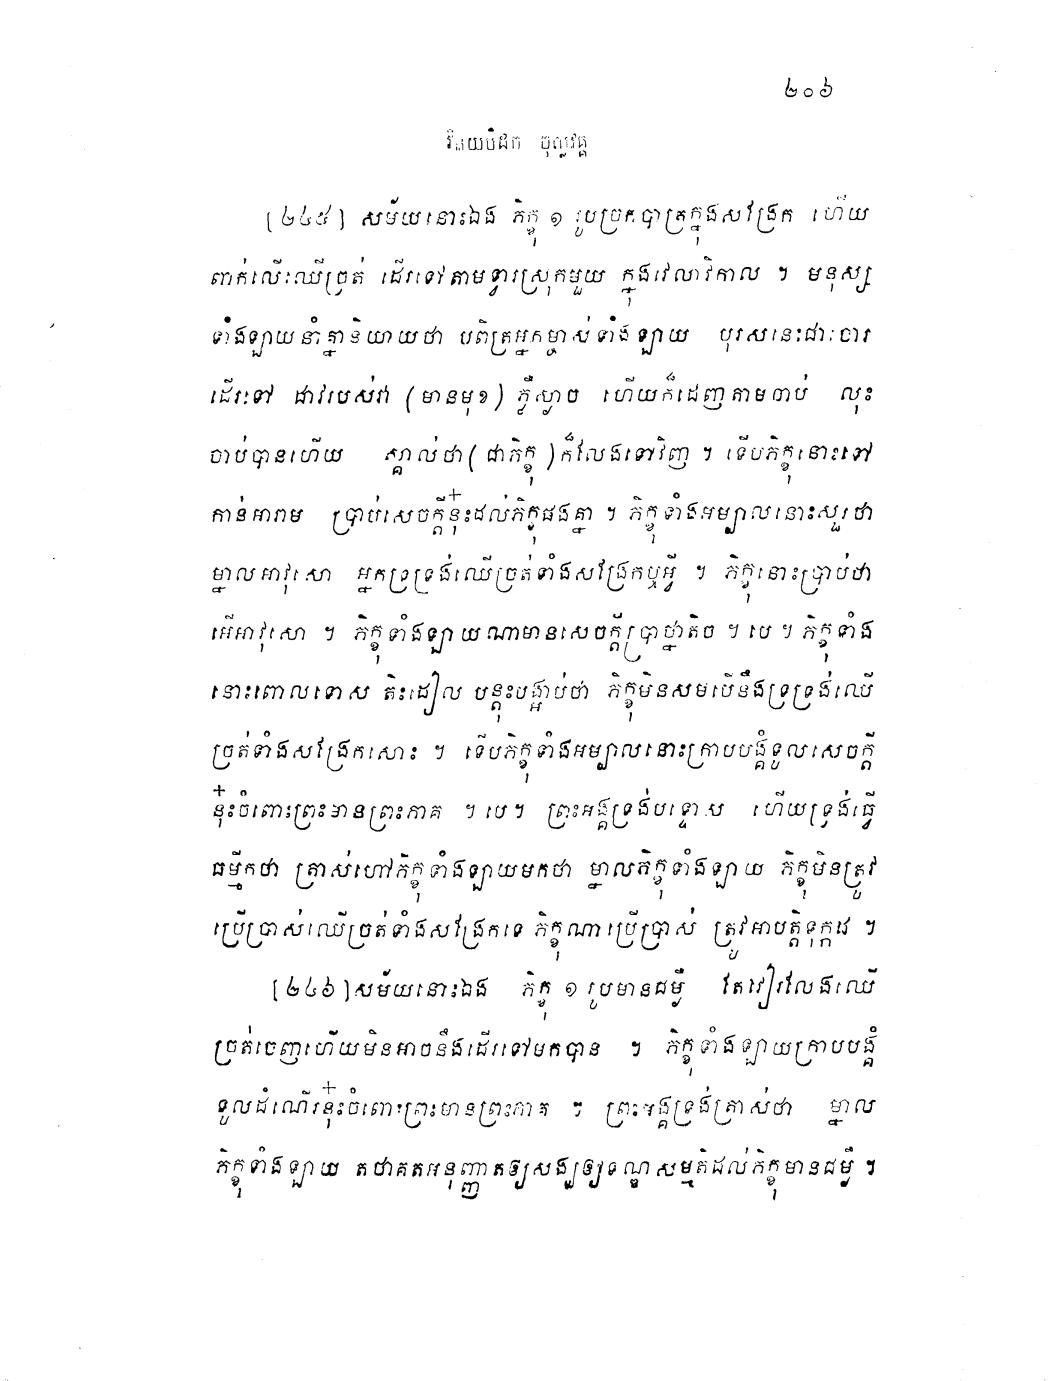 ២០៦
វិនយបិដក ចុល្លវគ្គ
[២៤៥] សម័យនោះឯង ភិក្ខុ ១ រូបច្រកបាត្រក្នុងសង្រែក ហើយ
ពាក់លើឈើច្រត់ ដើរទៅតាមទ្វារស្រុកមួយ ក្នុងវេលាវិកាល ។ មនុស្ស
ទាំងឡាយនាំគ្នានិយាយថា បពិត្រអ្នកម្ចាស់ទាំងឡាយ បុរសនេះជាចោរ
ដើរទៅ ដាវរបស់វា (មានមុខ) ភ្លឺស្លាច ហើយក៏ដេញតាមចាប់ លុះ
ចាប់បានហើយ ស្គាល់ថា (ជាភិក្ខុ) ក៏លែងទៅវិញ ។ ទើបភិក្ខុនោះទៅ
កាន់អារាម ប្រាប់សេចក្តីនុ៎ះដល់ភិក្ខុផងគ្នា ។ ភិក្ខុទាំងអម្បាលនោះសួរថា
ម្នាលអាវុសោ អ្នកទ្រទ្រង់ឈើច្រត់ទាំងសង្រែកឬអ្វី ។ ភិក្ខុនោះប្រាប់ថា
អើអាវុសោ ។ ភិក្ខុទាំងឡាយណាមានសេចក្តីប្រាថ្នាតិច ។ បេ ។ ភិក្ខុទាំង
នោះពោលទោស តិះដៀល បន្តុះបង្អាប់ថា ភិក្ខុមិនសមបើនឹងទ្រទ្រង់ឈើ
ច្រត់ទាំងសង្រែកសោះ ។ ទើបភិក្ខុទាំងអម្បាលនោះក្រាបបង្គំទូលសេចក្តី
នុ៎ះចំពោះព្រះមានព្រះភាគ ។ បេ ។ ព្រះអង្គទ្រង់បន្ទោស ហើយទ្រង់ធ្វើ
ធម្មីកថា ត្រាស់ហៅភិក្ខុទាំងឡាយមកថា ម្នាលភិក្ខុទាំងឡាយ ភិក្ខុមិនត្រូវ
ប្រើប្រាស់ឈើច្រត់ទាំងសង្រែកទេ ភិក្ខុណាប្រើប្រាស់ ត្រូវអាបត្តិទុក្កដ ។
[២៤៦] សម័យនោះឯង ភិក្ខុ ១ រូបមានជម្ងឺ តែវៀរលែងឈើ
ច្រត់ចេញហើយមិនអាចនឹងដើរទៅមកបាន ។ ភិក្ខុទាំងឡាយក្រាបបង្គំ
ទូលដំណើរនុ៎ះចំពោះព្រះមានព្រះភាគ ។ ព្រះអង្គទ្រង់ត្រាស់ថា ម្នាល
ភិក្ខុទាំងឡាយ តថាគតអនុញ្ញាតឲ្យសង្ឃឲ្យទណ្ឌសម្មតិដល់ភិក្ខុមានជម្ងឺ ។